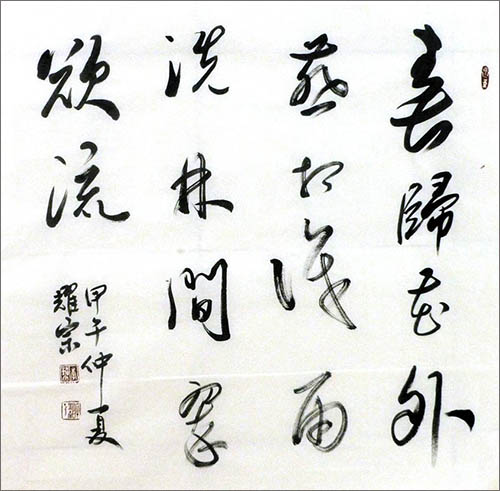 春歸花外
燕相識雨
洗林間翠
欲流
甲午仲夏
耀宗